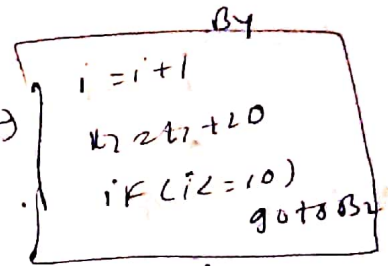 B4
i = i + 1
t7 = t7 + 20
if (i <= 10)
goto B2